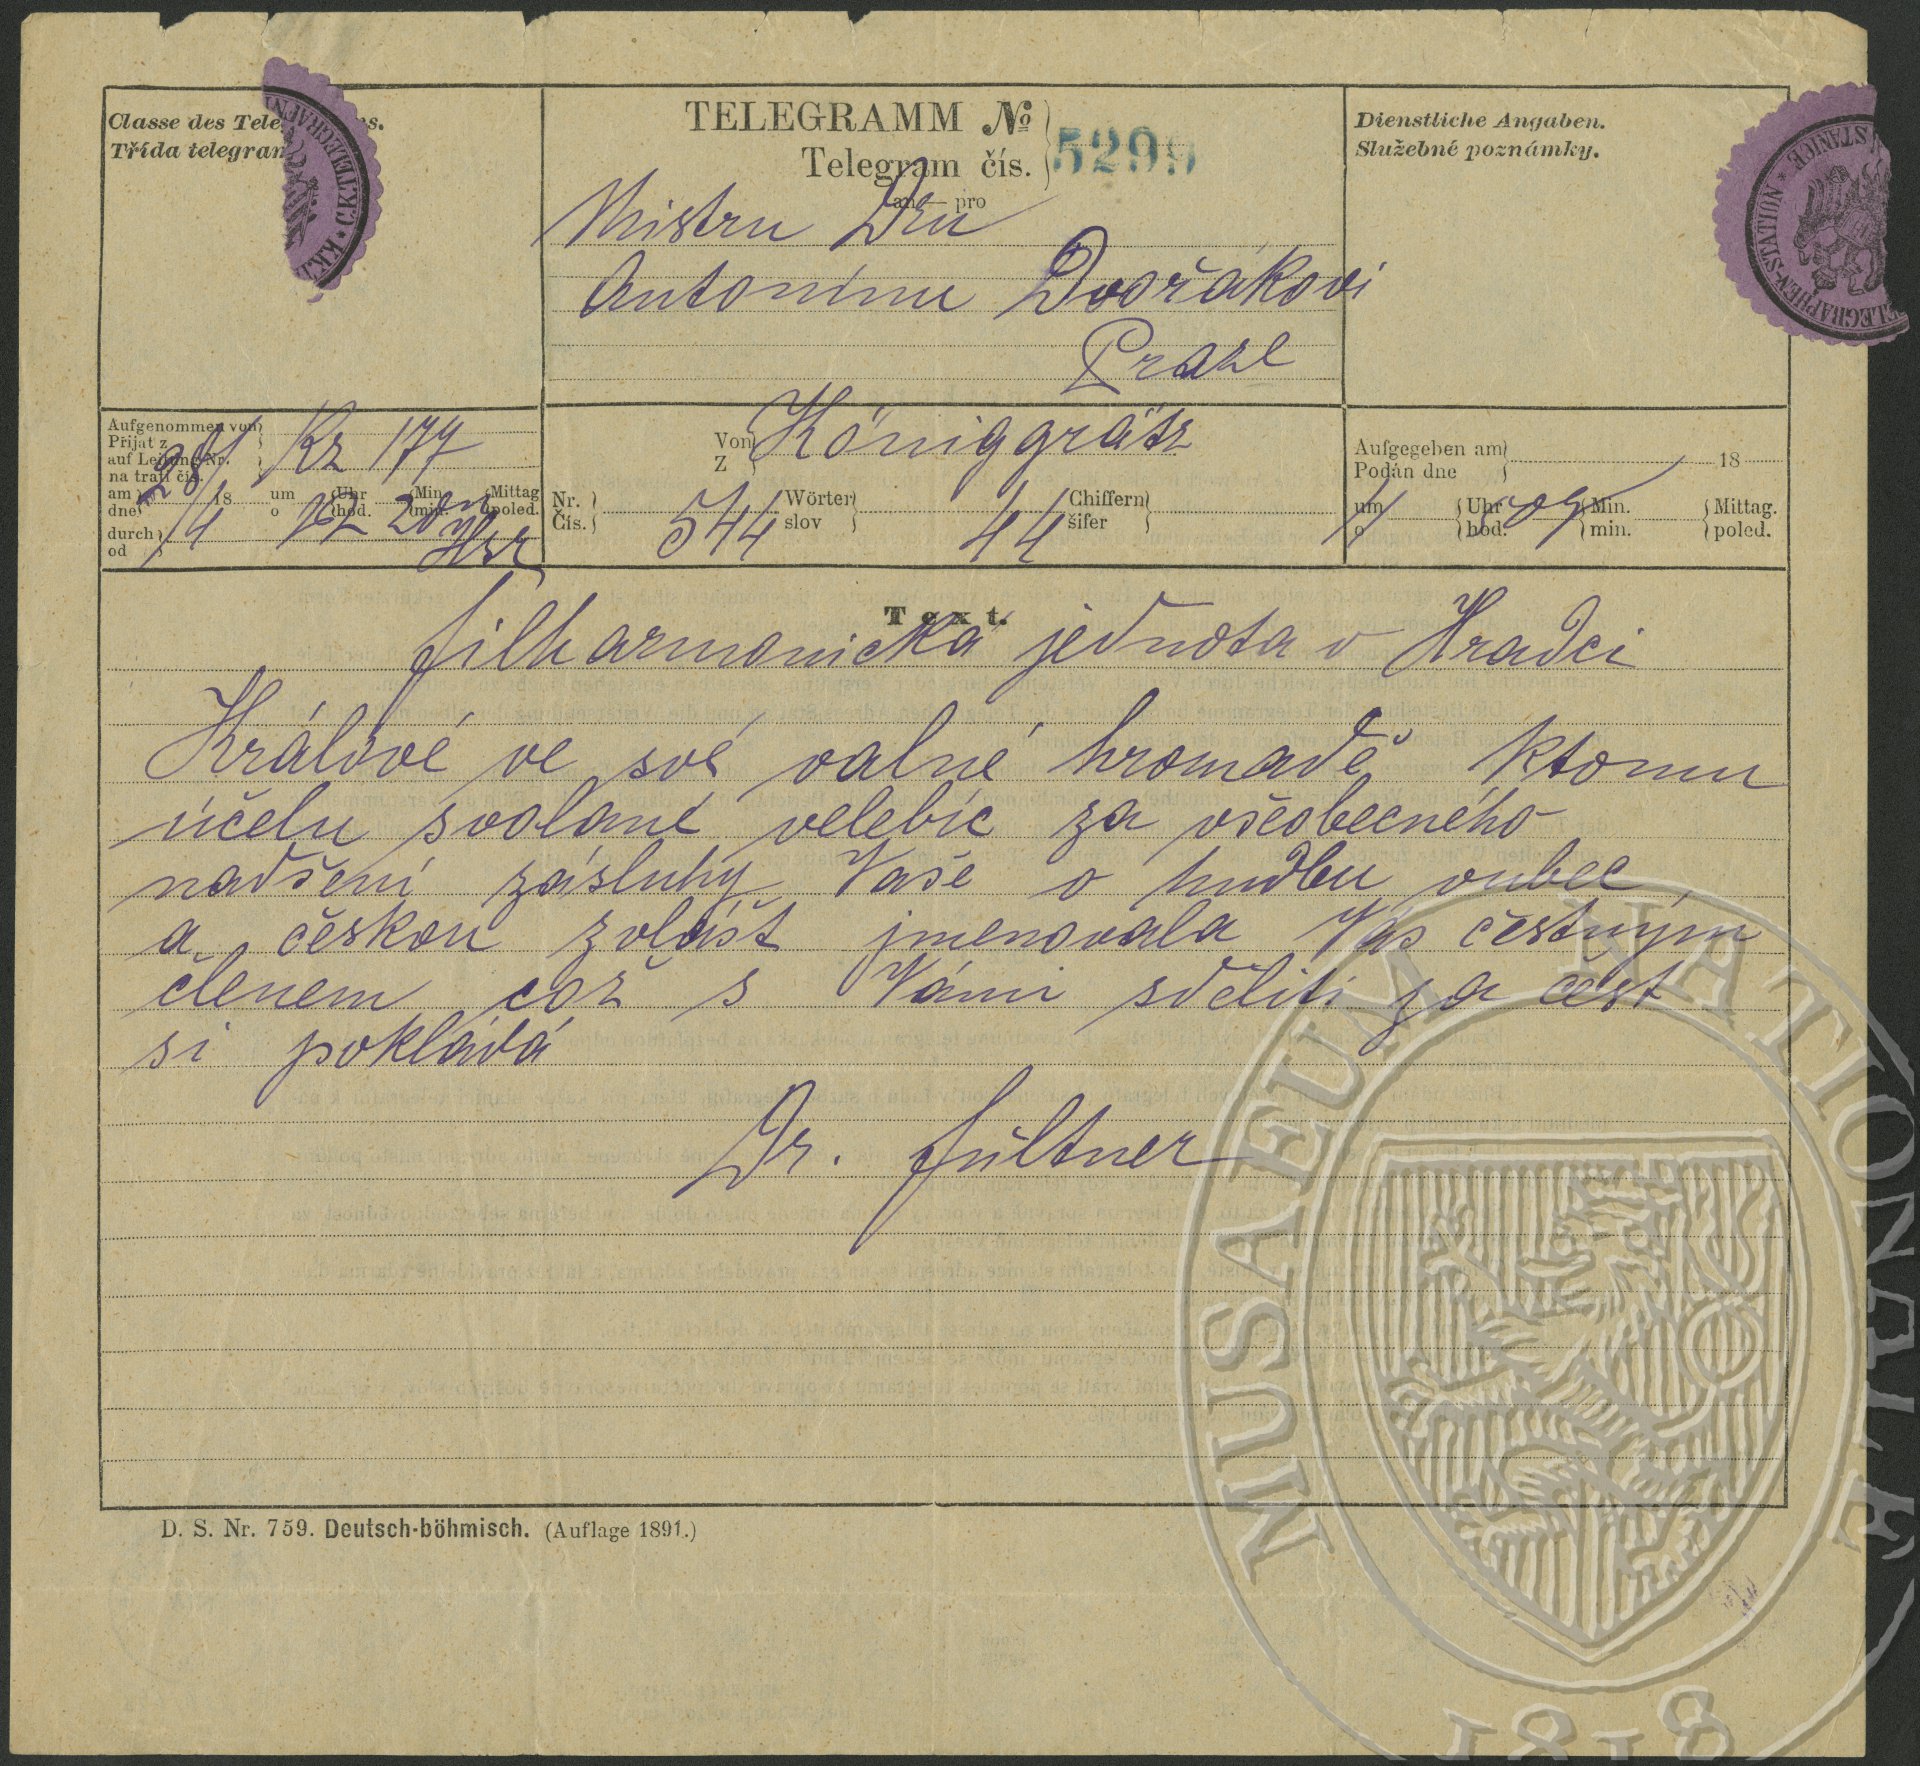 Classe des Tele es.
Třída telegram
TELEGRAMM №
Telegram čís.
5299
an — pro
Dienstliche Angaben.
Služebné poznámky.
K.K. * C.K. TELEGRAFNÍ
TELEGRAPHEN-STATION * STANICE *
Mistru Dru
Antonínu Dvořákovi
Praze
Aufgenommen von
Přijat z
auf Leitung Nr.
na trati čís.
Kz 177
am
dne
18
um
o
Uhr
hod.
Min.
min.
Mittag
poled.
durch
od
Von
Z
Königgrätz
Nr.
Čís.
544
Wörter
slov
44
Chiffern
šifer
Aufgegeben am
Podán dne
18
um
o
Uhr
hod.
Min.
min.
Mittag.
poled.
Text.
filharmonická jednota v Hradci
Králové ve své valné hromadě ktomu
účelu svolané velebíc za všeobecného
nadšení zásluhy Vaše o hudbu vubec
a českou zvlášt jmenovala Vás čestným
členem což s Vámi sděliti za čest
si pokládá
Dr. fültner
D. S. Nr. 759. Deutsch-böhmisch. (Auflage 1891.)
MUSAEUM NATIONALE
1818